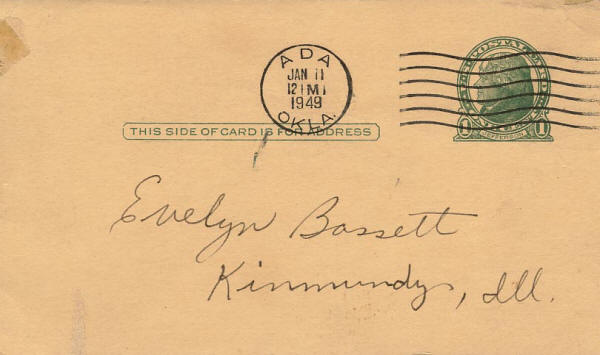 ADA
JAN 11
12 M
1949
OKLA.
U.S. POSTAL CARD
1 JEFFERSON 1
THIS SIDE OF CARD IS FOR ADDRESS
Evelyn Bassett
Kinmundy, Ill.